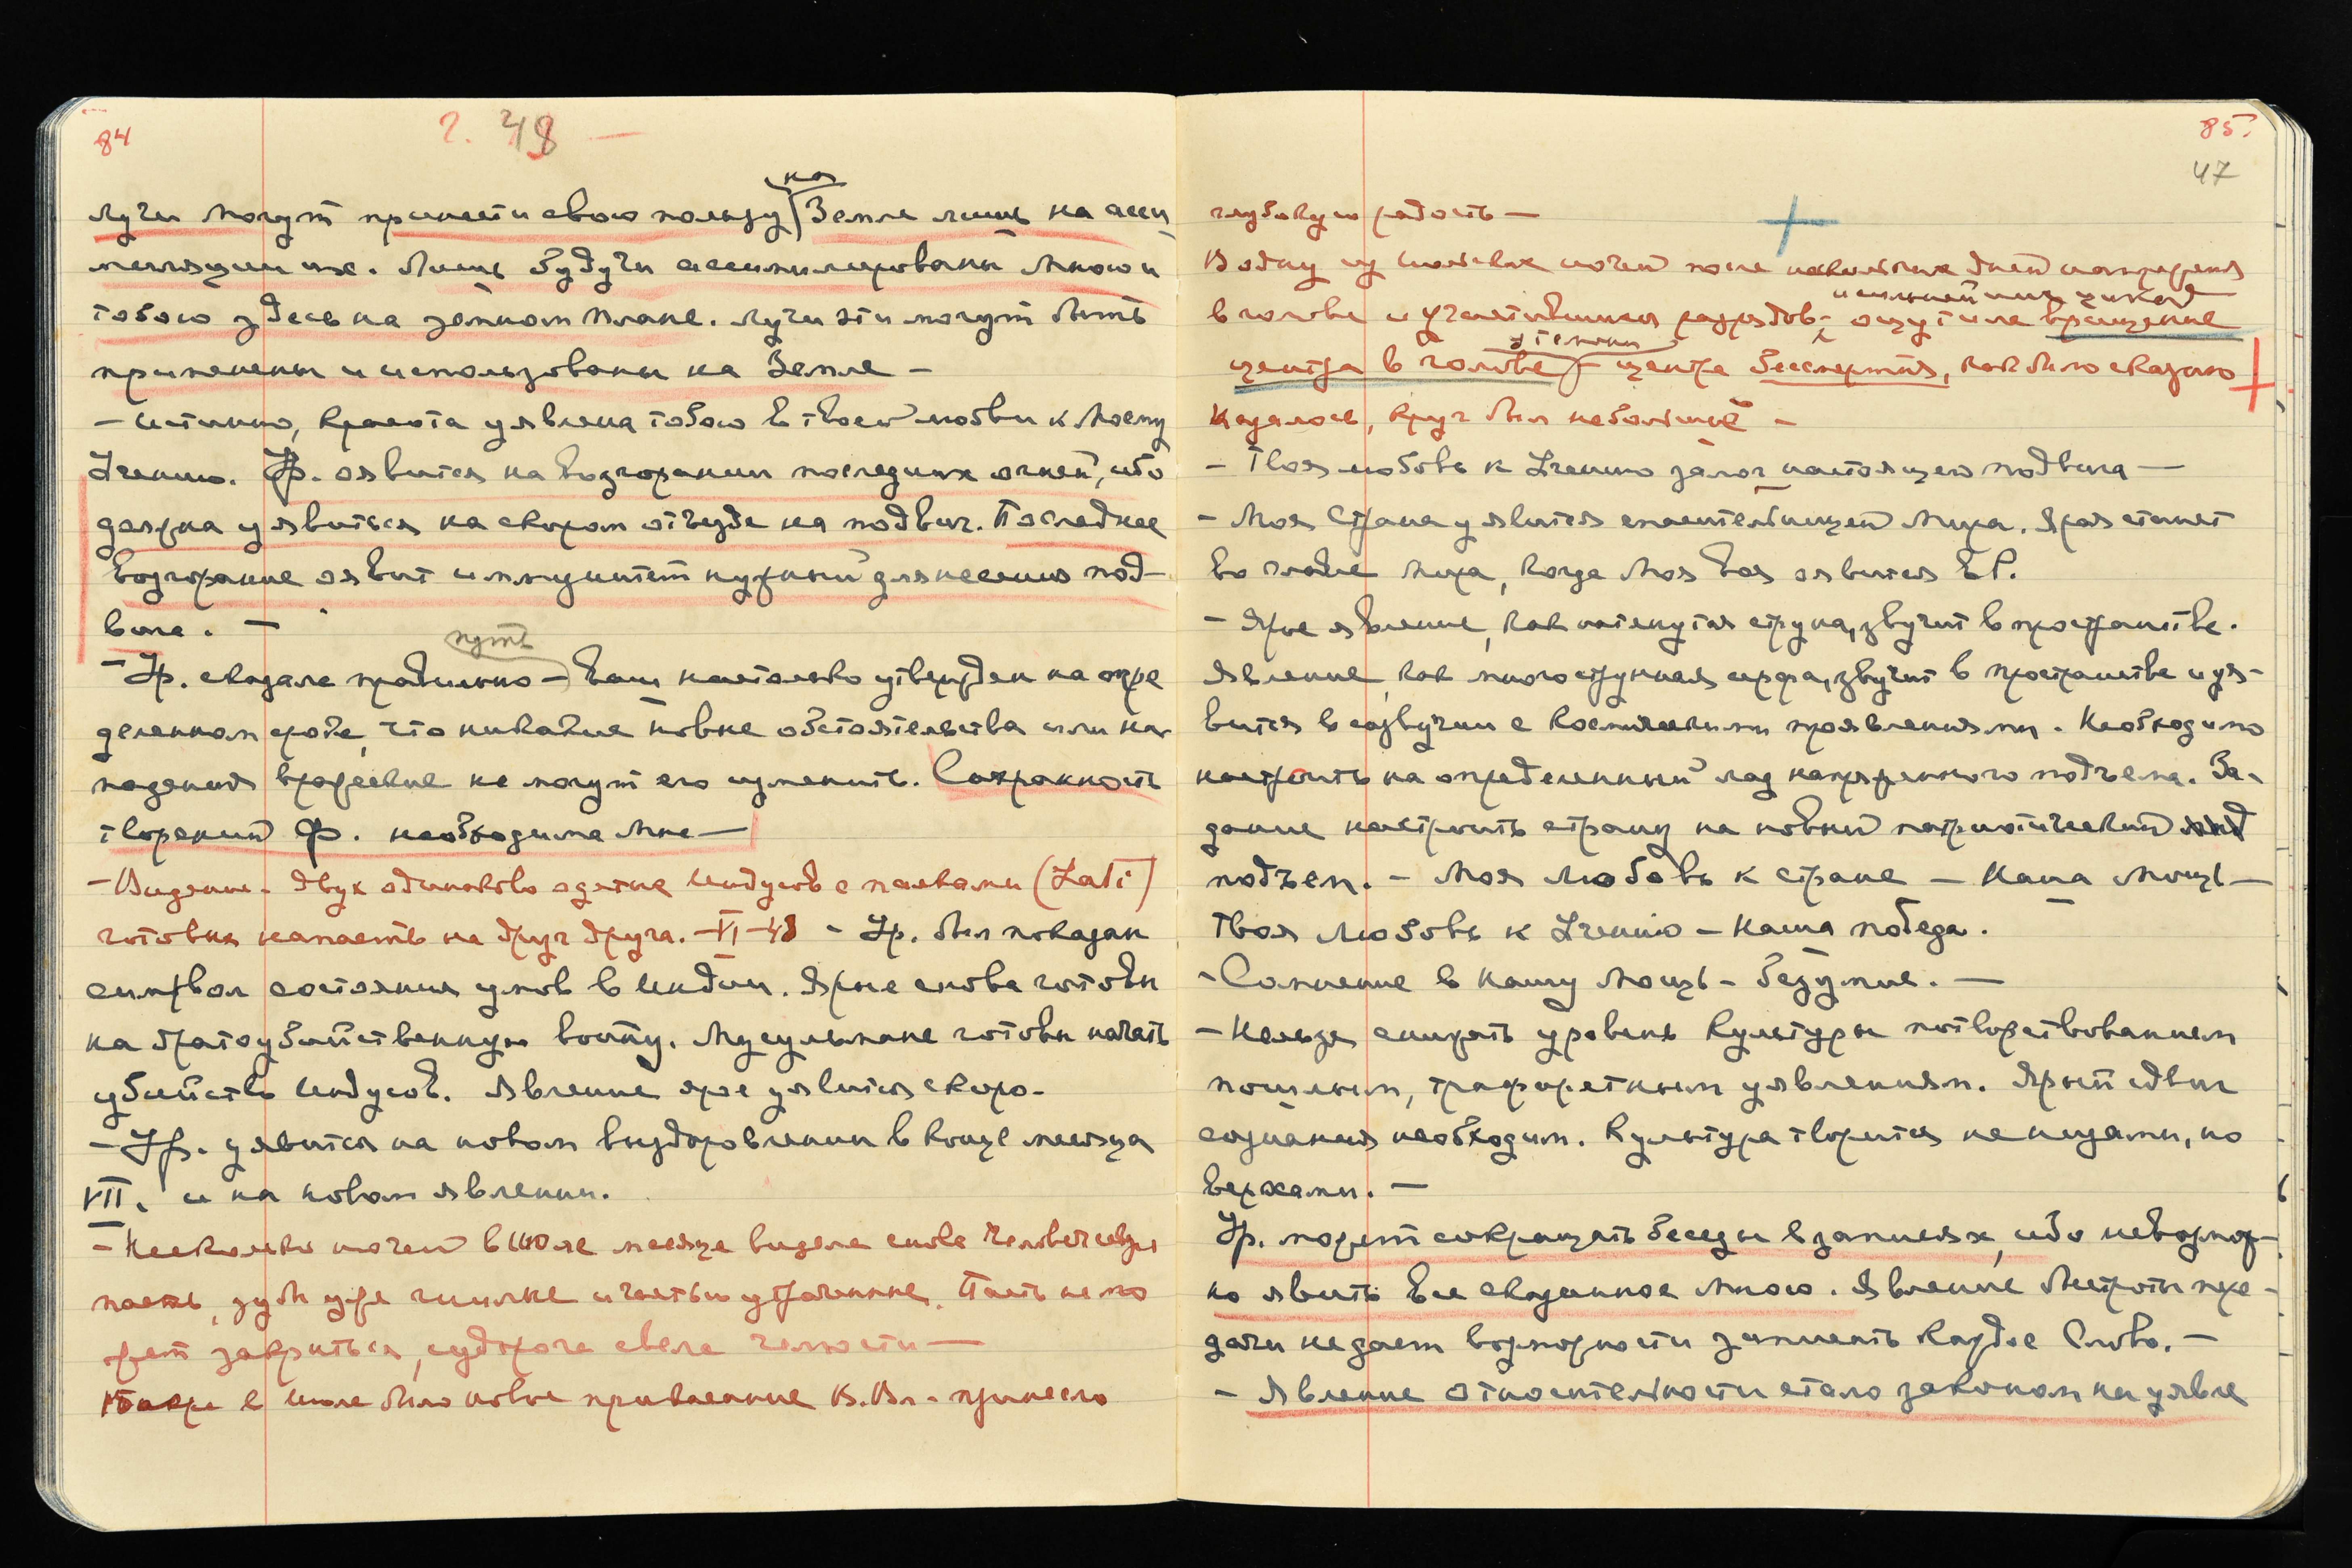 84
г. 48 —
на
Лучи могут принести свою пользу Земле лишь на асси
миляции их. Лишь будучи ассимилированы Мною и
тобою здесь на земном плане. Лучи эти могут быть
применены и использованы на Земле —
— Истинно, красота уявлена тобою в твоей любви к Моему
Учению. Ур. явится на возгорании последних огней, ибо
должна уявиться на скором отъезде на подвиг. Последнее
возгорание явит иммунитет нужный для несения под-
вига. —
путь
— Ур. сказала правильно — Ваш настолько утвержден на опре
деленном сроке, что никакие новые обстоятельства или на-
падения вражеские не могут его изменить. Сохранность
творений Ф. необходима Мне —
— Видение. Двух одинаково одетых индусов с палками (Lati)
готовых напасть на друг друга. VI–48 – Ур. был показан
символ состояния умов в Индии. Ярые снова готовы
на братоубийственную войну. Мусульмане готовы начать
убийство индусов. Явление ярое уявится скоро.
— Ур. уявится на новом выздоровлении в конце месяца
VII. и на новом явлении.
— Несколько ночей в Июле месяце видела снова человеческую
пасть, зубы уже гнилые и частью утраченные. Пасть не мо
жет закрыться, судорога свела челюсти —
Также в Июле было новое приближение В.Вл. принесло
85.
47
глубокую радость —
В одну из июльских ночей после нескольких дней напряжения
в голове и участившихся разрядов, ощутила вращение
центра в голове — центра бессмертия, как было сказано
Казалось, круг был небольшой —
— Твоя любовь к Учению залог настоящего подвига —
— Моя Страна уявится спасительницей Мира. Ярая станет
во главе Мира, когда Моя Воля явится ЕР.
— Ярое явление, как натянутая струна, звучит в пространстве.
Явление, как многострунная арфа, звучит в пространстве и уя-
вится в созвучии с космическими проявлениями. Необходимо
настроить на определенный лад напряженного подъема. За-
дание настроить страну на новый патриотический
подъем. — Моя Любовь к стране — Наша Мощь —
Твоя Любовь к Учению — Наша победа.
— Сомнение в Нашу Мощь — безумие. —
— Нельзя снижать уровень культуры потворствованием
пошлым, трафаретным уявлениям. Ярый сдвиг
сознания необходим. Культура творится не низами, но
верхами. —
Ур. может сокращать беседы в записях, ибо невозмож-
но явить Все сказанное Мною. Явление быстроты пере-
дачи не дает возможности записать каждое Слово. —
— Явление относительности стало законом на уявле